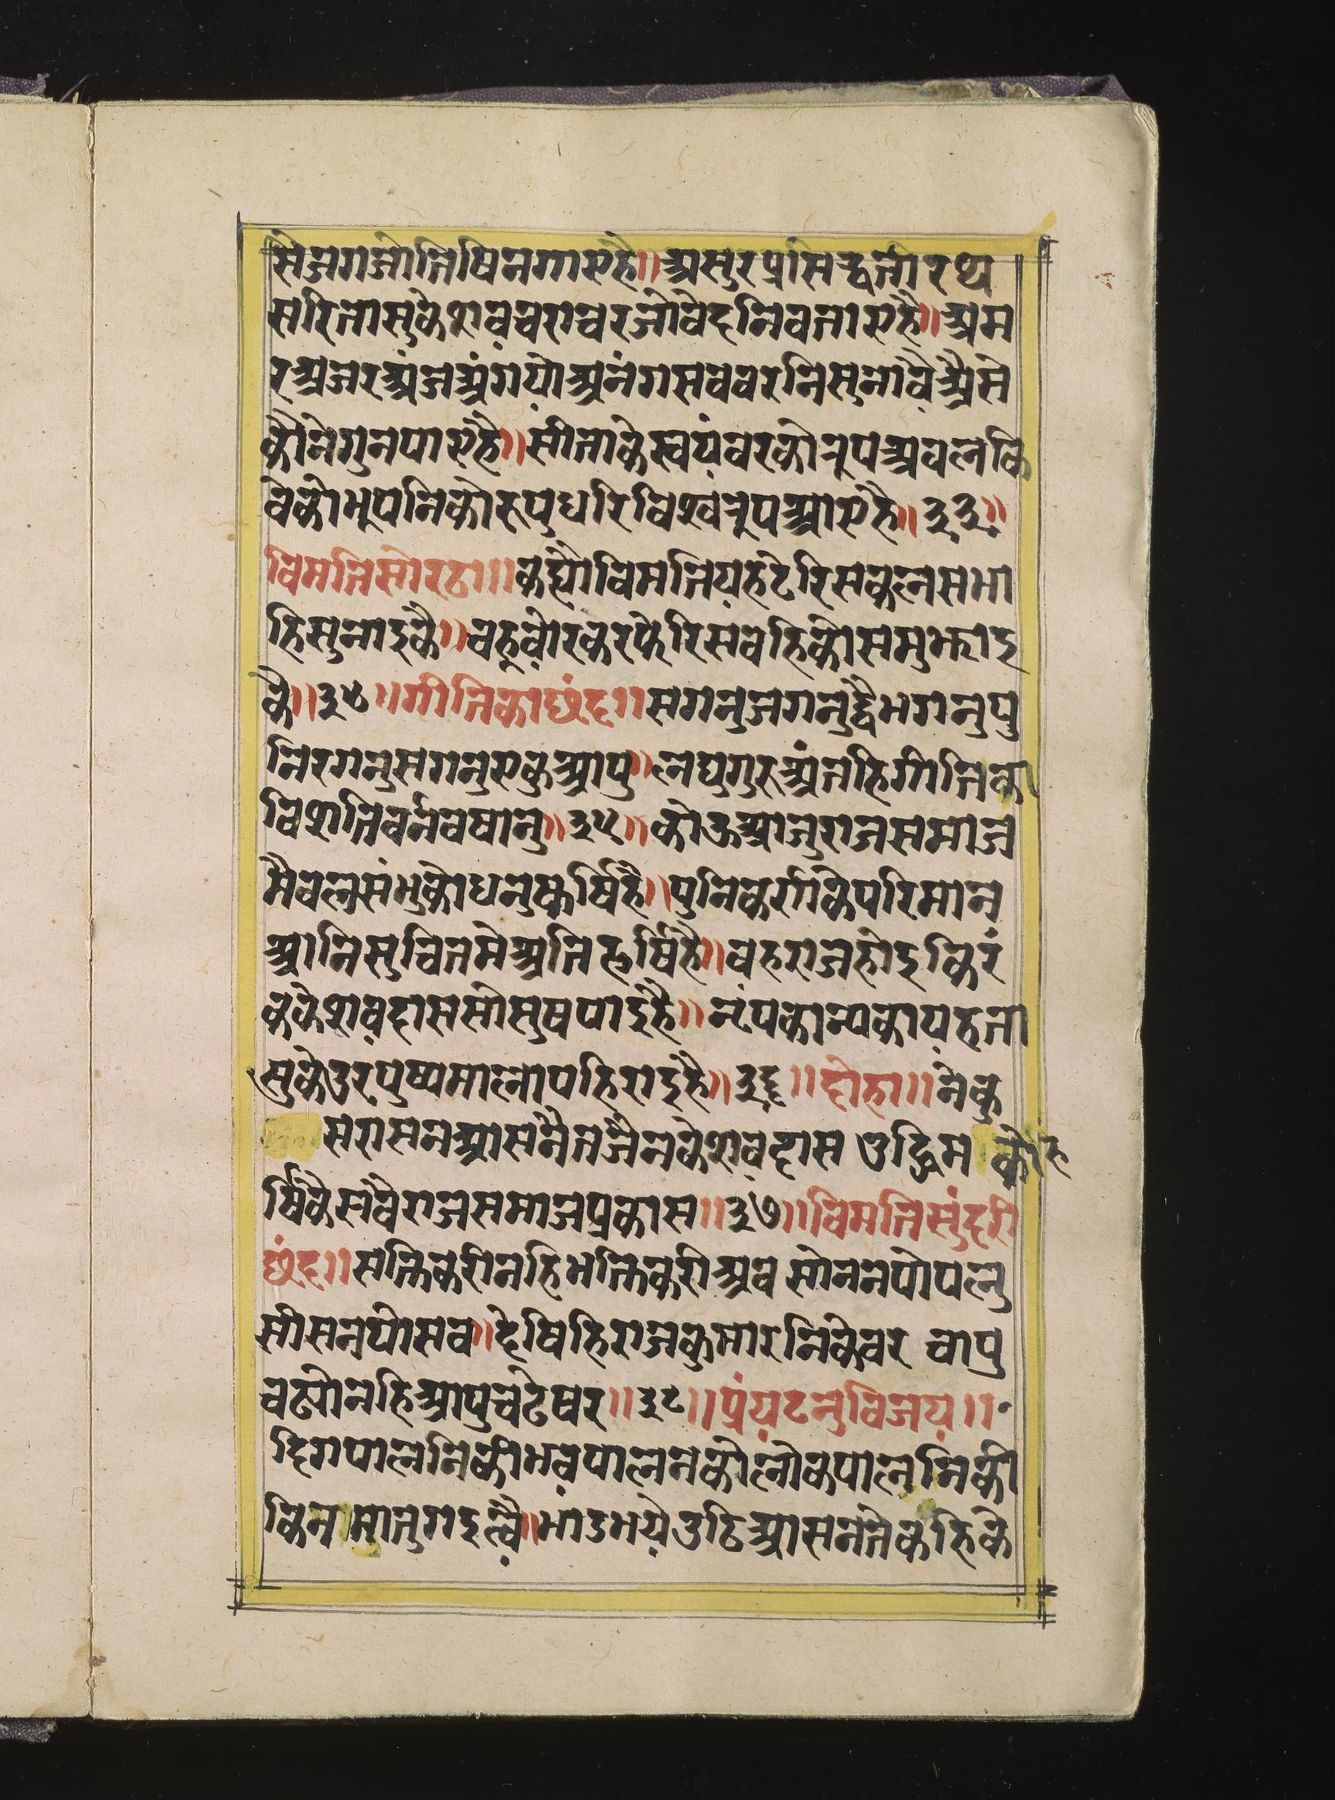 सेजगजोतिषिनगाएहै॥असुरप्रसिद्धतीरथ
सरितासुकेशवचराचरजोवेदनिवताएहै॥अम
रअजरअंजअंगयोअनंगसववरनिसुनावैअैसे
कौनेगुनपाएहै॥सीताकेस्वयंवरकोनृपअवलकि
वेकोभूपनिकोरूपुधरिविश्वनृपआएहै॥३३॥
विमतिसोरठा॥कह्यौविमतियहटेरिसकलसभा
हिसुनाइकै॥चहूवोरकरफेरिसवहिकोसमुझाइ
कै॥३४॥गीतिकाछंद॥सगनुजगनुद्वैभगनुपु
निरगनुसगनुएकुआपु॥लघुगुरूअंतहिगीतिका
विशतिवर्नवषानु॥३५॥कोऊआजुराजसमाज
मैवलुसंभुकोधनुर्कर्षिहै॥पुनिकर्राकेपरिमान
आनिसुचितमेअतिहर्षिहै॥वहराजहोइकिरं
ककेशवदाससोसुषपाइहै॥नृपकान्यकायहता
सुकेउरपुष्पमालापहिराइहै॥३६॥दोहा॥नेकु
सरासनआसनैतजैनकेशवदास उद्धिम कौक
र्षिकैसवैराजसमाजप्रकास॥३७॥विमतिसुंदरी
छंद॥सक्तिकरीनहिभक्तिकरीअव सोननपोपलु
सीसनयोसव॥देषिहिराजकुमारनिकेवर चापु
चढ्योनहिआपुचढेषर॥३८॥प्रंयटनुविजय॥
दिगपालनिकीभवपालनकीलोकपालुनिकी
किन मातुगइच्वै॥भांडभयेउठिआसनतेकहिके